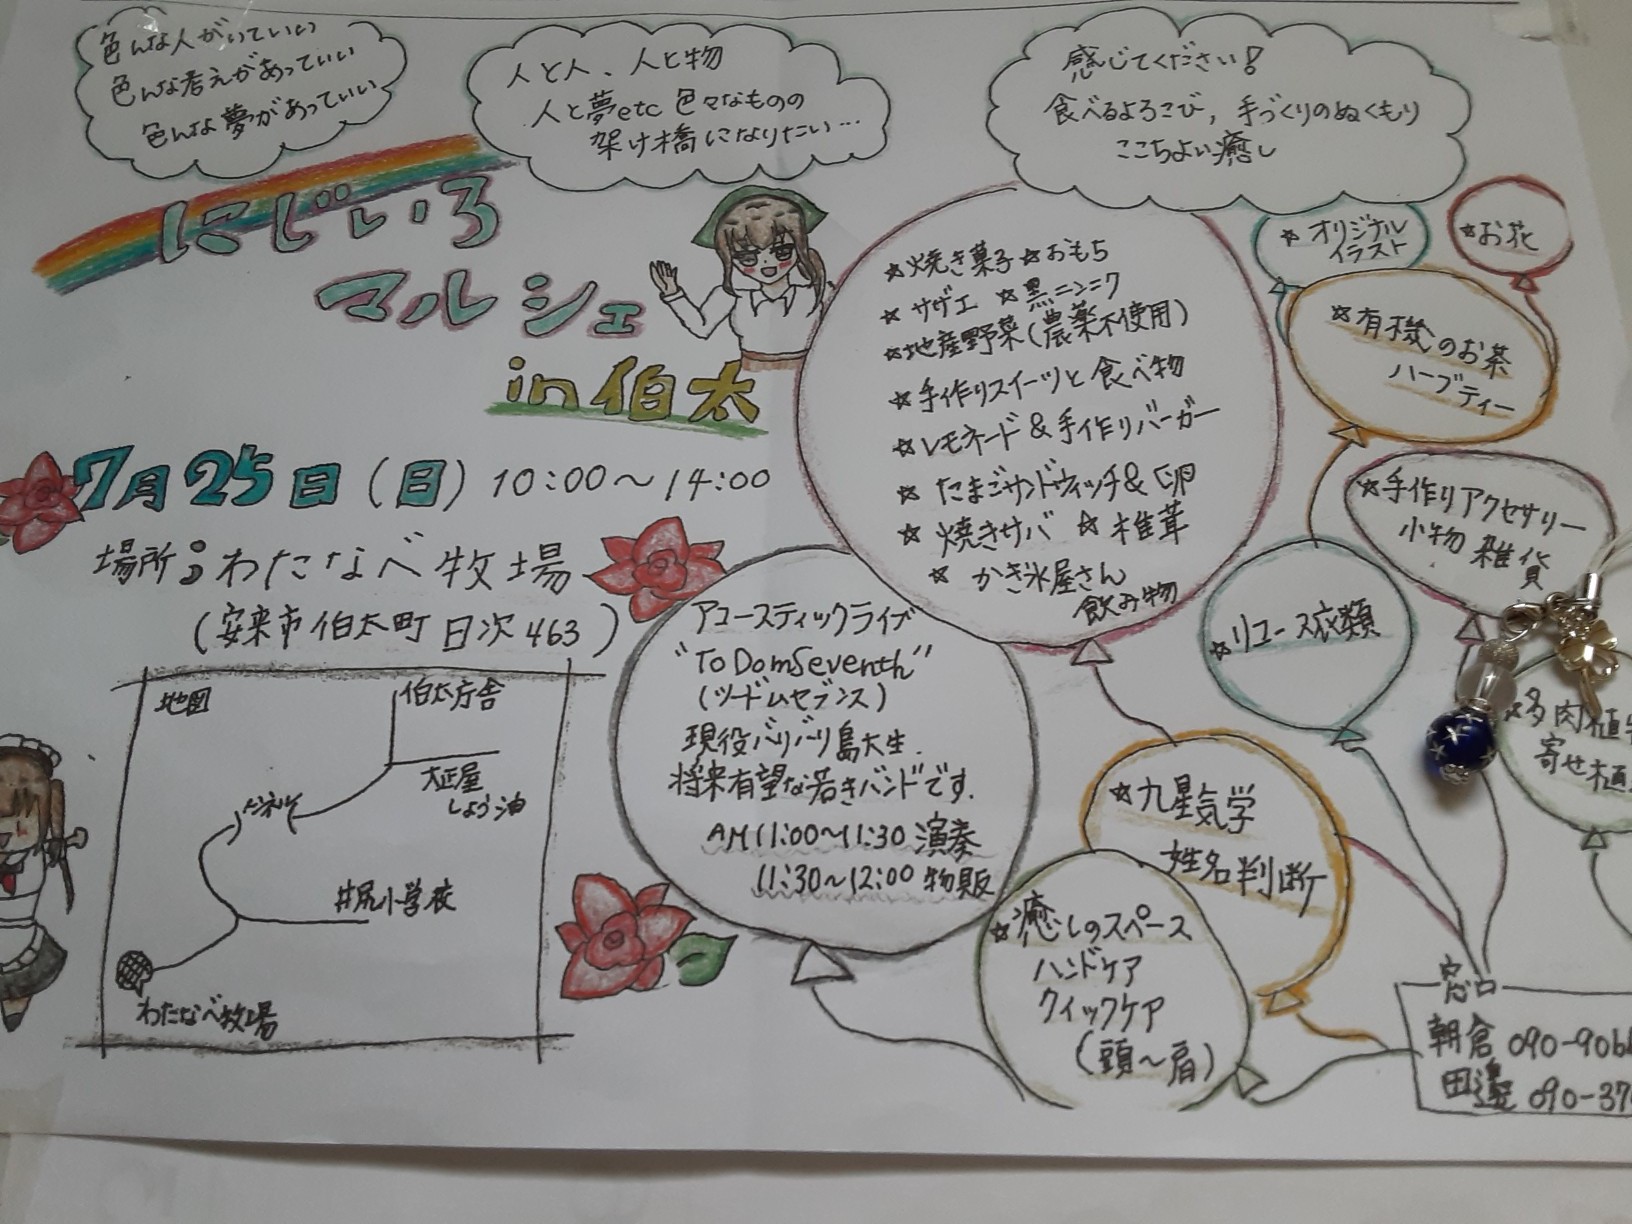 色んな人がいていい
色んな考えがあっていい
色んな夢があっていい
人と人、人と物
人と夢etc 色々なものの
架け橋になりたい…
感じてください!
食べるよろこび, 手づくりのぬくもり
ここちよい癒し
にじいろ
マルシェ
in 伯太
7月25日(日) 10:00〜14:00
場所;わたなべ牧場
(安来市伯太町 日次 463)
地図
伯太庁舎
大正屋
しょう油
トンネル
井尻小学校
わたなべ牧場
☆焼き菓子 ☆おもち
☆サザエ ☆黒ニンニク
☆地産野菜(農薬不使用)
☆手作りスイーツと食べ物
☆レモネード&手作りバーガー
☆たまごサンドウィッチ&卵
☆焼きサバ ☆椎茸
☆かき氷屋さん
飲み物
アコースティックライブ
"ToDomSeventh"
(ツードムセブンス)
現役バリバリ島大生.
将来有望な若きバンドです.
AM11:00〜11:30 演奏
11:30〜12:00 物販
☆オリジナル
イラスト
☆お花
☆有機のお茶
ハーブティー
☆手作りアクセサリー
小物 雑貨
☆リユース衣類
☆多肉植
寄せ植
☆九星気学
姓名判断
☆癒しのスペース
ハンドケア
クイックケア
(頭〜肩)
窓口
朝倉 090-906
田邊 090-37